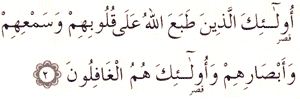 أُولَـٰئِكَ الَّذِينَ طَبَعَ اللهُ عَلَى قُلُوبِهِمْ وَسَمْعِهِمْ
قصر
وَأَبْصَارِهِمْ وَأُولَـٰئِكَ هُمُ الْغَافِلُونَ ٢
قصر